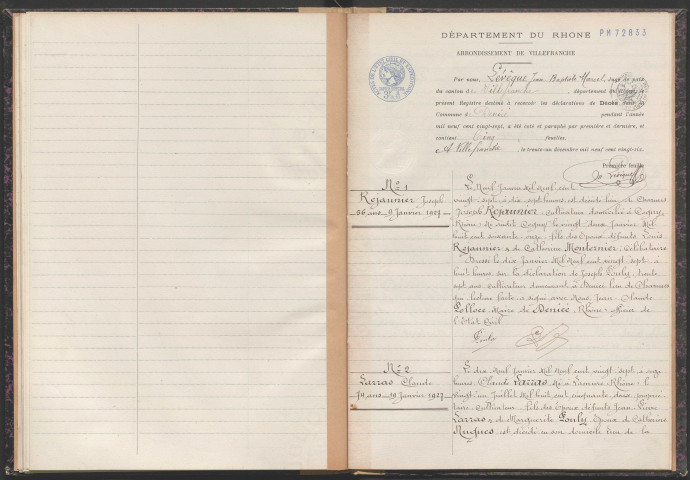 DÉPARTEMENT DU RHONE PM72855
ARRONDISSEMENT DE VILLEFRANCHE
Par nous, Lévêque Jean Baptiste Marcel, juge de paix
du canton de Villefranche, département du Rhône, le
présent Registre destiné à recevoir les déclarations de Décès dans la
Commune de Denicé pendant l'année
mil neuf cent vingt-sept, a été coté et paraphé par première et dernière, et
contient Cinq feuilles.
A Villefranche, le trente-un décembre mil neuf cent vingt-six.
Première feuille
No 1
Rejaunier Joseph
56 ans – 9 Janvier 1927
Le Neuf Janvier Mil Neuf cent
vingt sept, à dix sept heures est décédé lieu de Charmes
Joseph Rejaunier, Cultivateur domicilié à Cogny
Rhône, Né audit Cogny le vingt deux Janvier Mil
huit cent soixante onze, fils des Epoux défunts Louis
Rejaunier & de Catherine Monternier, Célibataire
Dressé le dix Janvier Mil Neuf cent vingt sept à
huit heures sur la déclaration de Joseph Pouly, trente
sept ans, Cultivateur demeurant à Denicé lieu de Charmes
qui lecture faite a signé avec Nous Jean Claude
Lollore Maire de Denicé, Rhône, Officier de
l'Etat Civil
Pouly
No 2
Larras Claude
74 ans – 19 Janvier 1927
Le dix Neuf Janvier Mil Neuf cent vingt sept à onze
heures, Claude Larras, Né à Lamure Rhône, le
vingt un Juillet Mil huit cent cinquante deux, proprié-
taire, Cultivateur, fils des Epoux défunts Jean Pierre
Larras & de Marguerite Pouly, Epoux de Catherine
Hugues est décédé en son domicile lieu de la